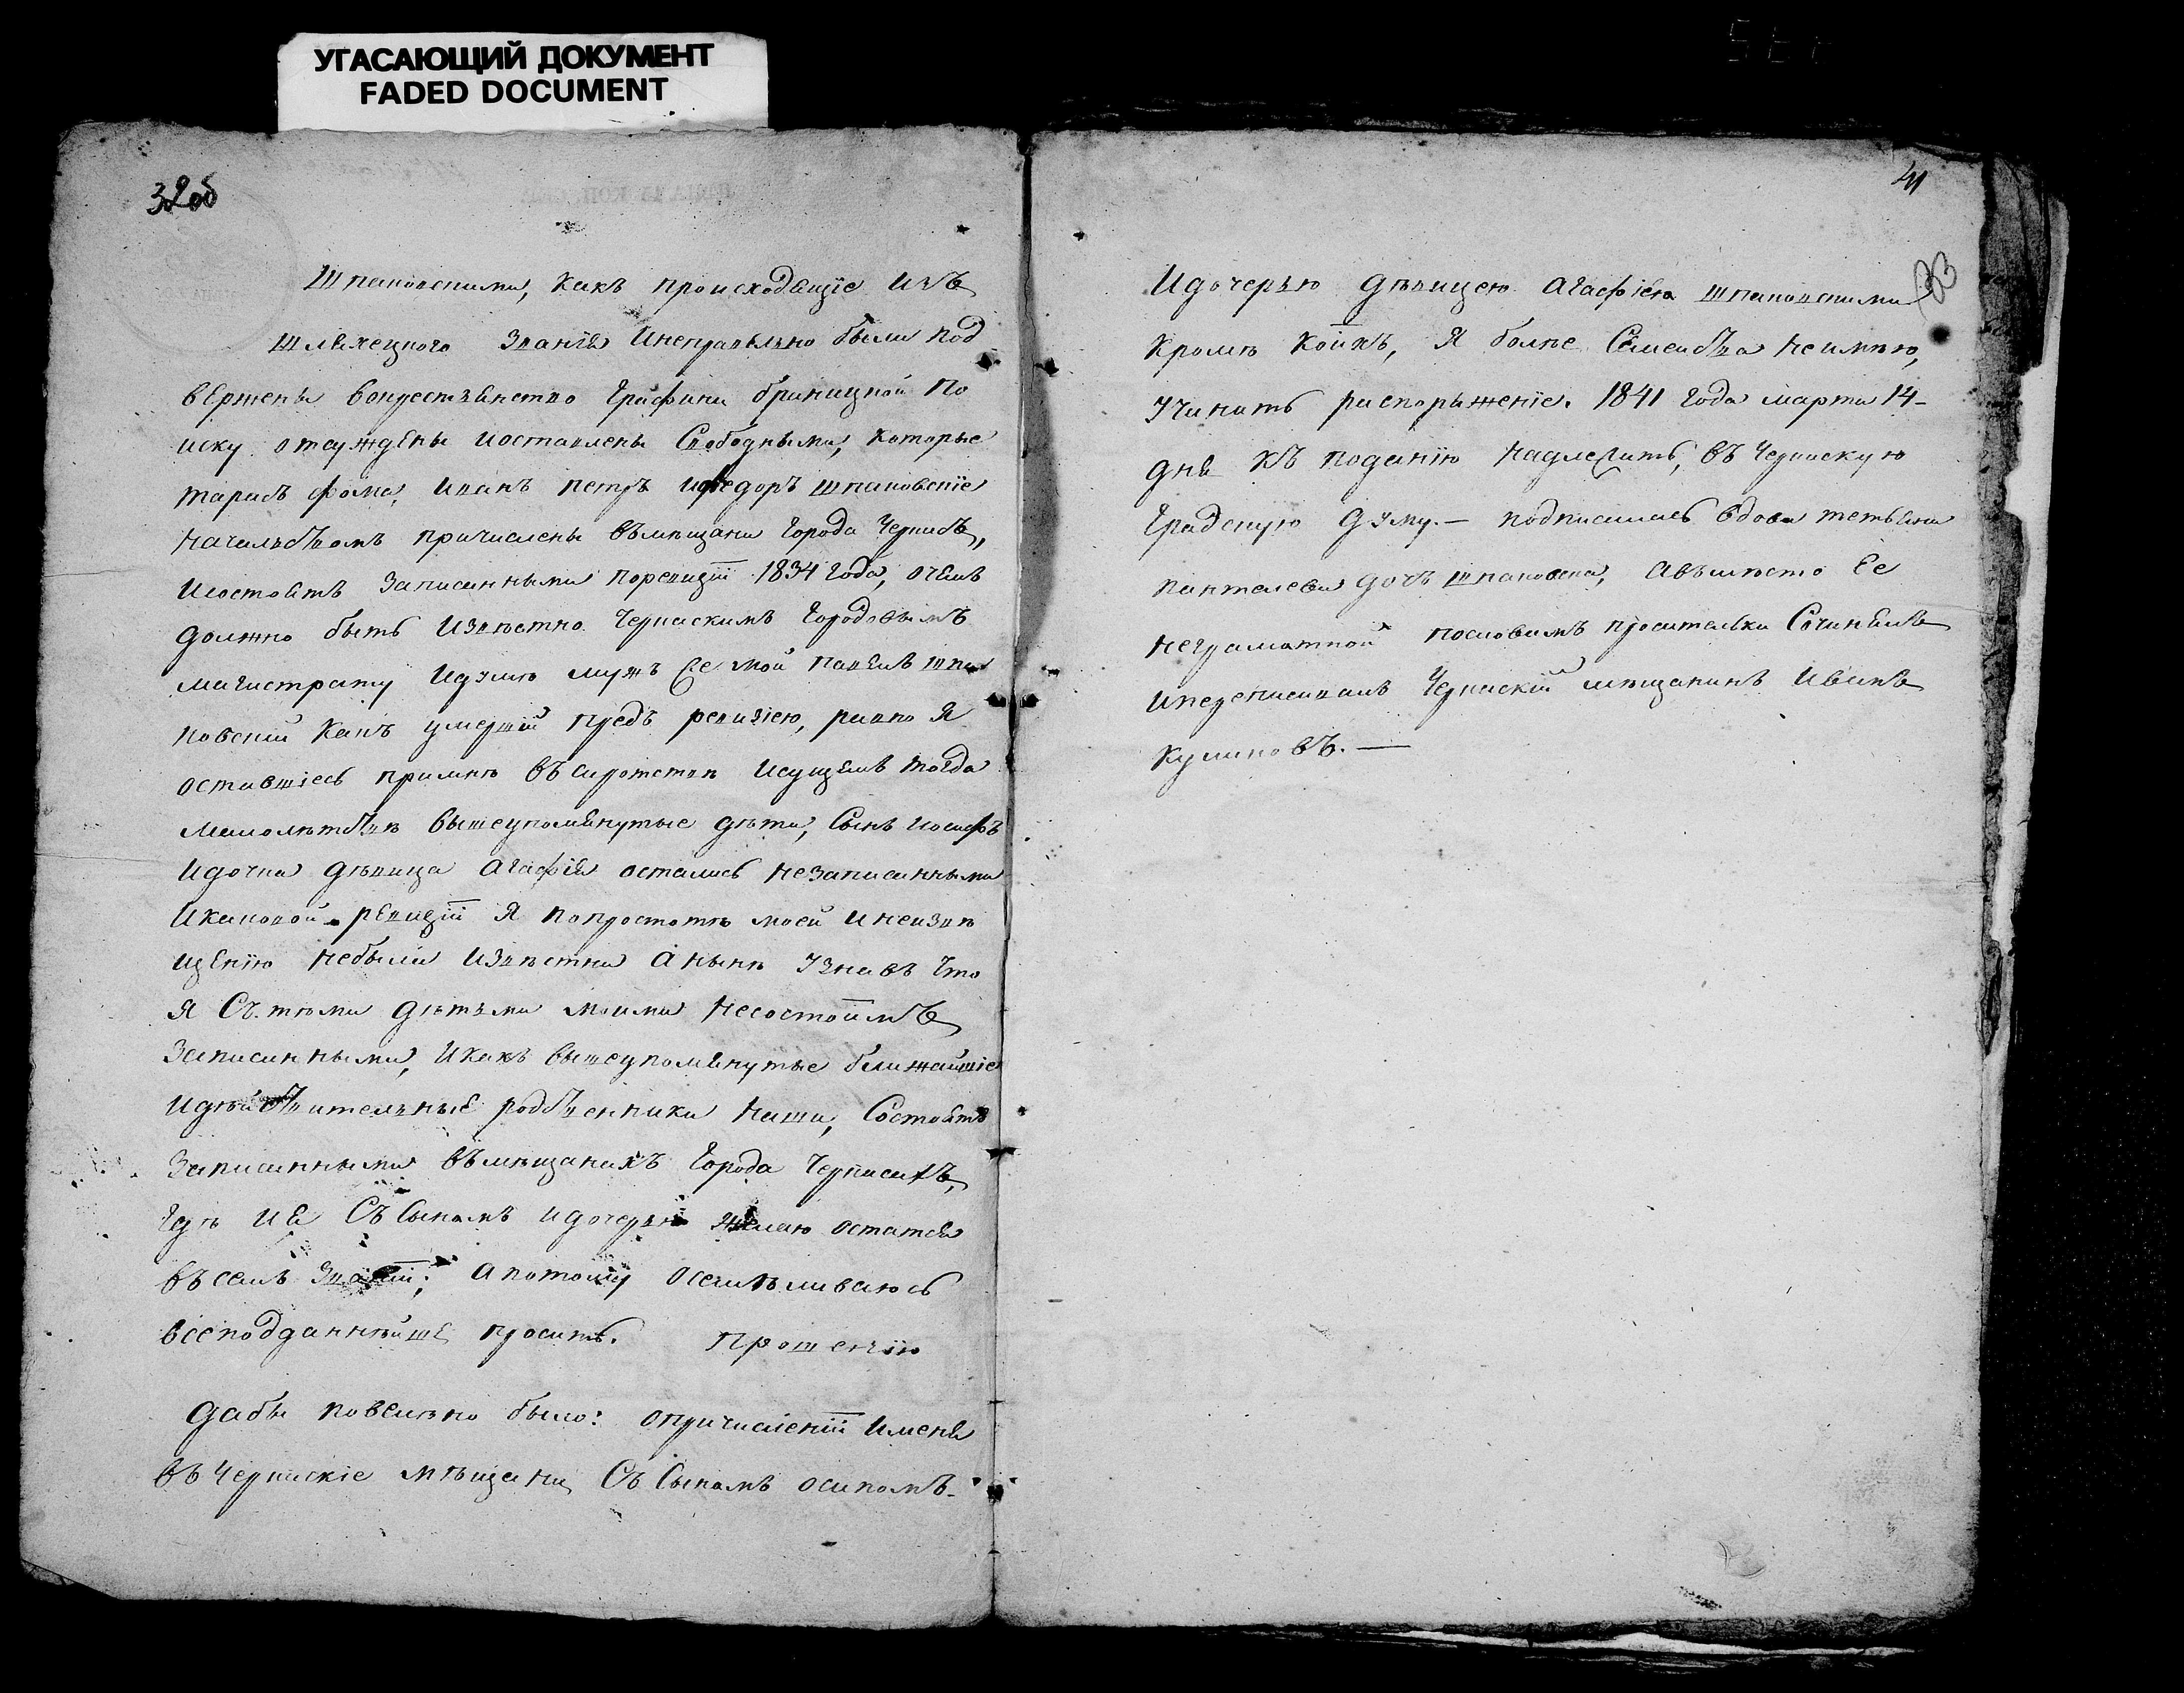 УГАСАЮЩИЙ ДОКУМЕНТ
FADED DOCUMENT
32об
Шпаковскими, какъ происходящіе изъ
шляхецкого званія инеправильно были под
вержены вокрестьянство Графини браницкой По
иску отсуждены иоставлены Свободными, которые
тарасъ фома, иванъ петръ ифедоръ шпаковскіе
начальствомъ причислены въмещани Города Черкасъ,
исостоятъ записанными поревизіи 1834 года, очемъ
должно быть извѣстно Черкаскимъ Городовымъ
магистрату идумѣ мужъ Же мой павелъ шпа
ковскій какъ умершій предъ ревизіею, равно Я
оставшіесь примнѣ въ сиротствѣ исущемъ тогда
малолѣтствѣ вышеупомянутые дѣти, Сынъ иосифъ
идочка дѣвица агафія остались незаписанными
икаковой ревизіи Я попростотѣ моей инеизвѣ
щенію небыла извѣстна а нынѣ узнавъ что
я Съ тѣми дѣтьми моими несостоимъ
записанными, икакъ вышеупомянутые ближайшіе
идѣйствительные родственники наши, Состоятъ
записанными въмѣщанахъ Города Черкасахъ,
гдѣ ия Съ Сыномъ идочерью желаю остатся
въсемъ званіи; апотому осмѣливаюсь
всеподданнѣйше просить. Прошенію
дабы повелѣно было: опричисленіи именя
въ Черкаскіе мѣщани Съ Сыномъ осипомъ
41
33
идочерью дѣвицею агафіею шпаковскими
кромѣ коихъ, Я болѣе Семейства неимѣю,
учинить распоряженіе. 1841 года марта 14-
дня къ поданію надлежитъ, въ Черкаскую
Градскую думу.— подписалась вдова тетьяна
пантелеева дочъ шпаковска, авъмѣсто Ее
неграматной пословамъ просителки Сочинялъ
ипереписивалъ Черкаскій мѣщанинъ Иванъ
куликовъ.—